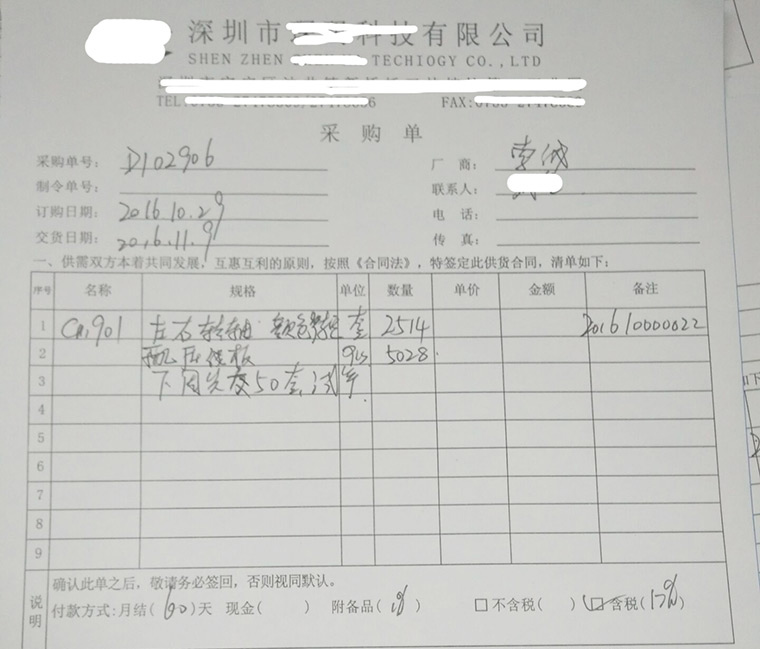 深圳市 科技有限公司
SHEN ZHEN TECHIOGY CO.,LTD
TEL: FAX:
采购单
采购单号: D102906 厂 商:
制令单号: 联系人:
订购日期: 2016.10.29 电 话:
交货日期: 2016.11.9 传 真:
一、供需双方本着共同发展，互惠互利的原则，按照《合同法》，特签定此供货合同，清单如下:
序号 名称 规格 单位 数量 单价 金额 备注
1 901 左右转轴 套 2514 201610000022
2 5028
3 下周先交50套试
4
5
6
7
8
9
说明 确认此单之后，敬请务必签回，否则视同默认。
付款方式:月结(60)天 现金( ) 附备品( ) 不含税( ) 含税(17%)